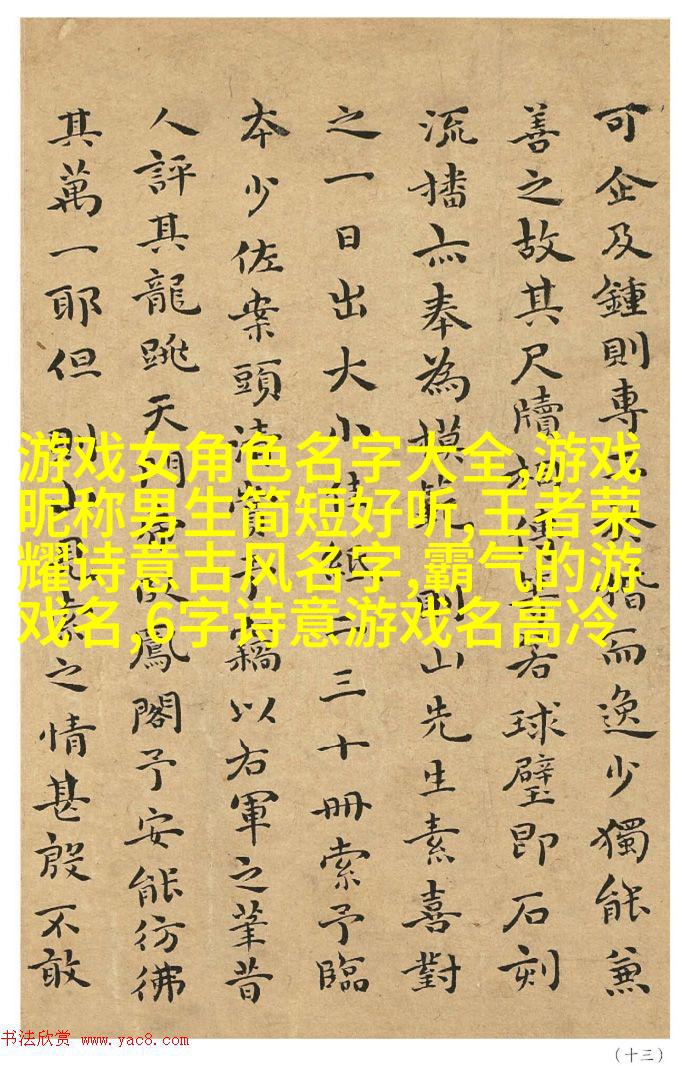 可企及鍾則專工入楷而逸少獨能兼
善之故其尺牘扵傳世者若球璧即石刻
流播亦奉為模範
山先生素喜對
之一日出大小
紙二三十冊索予臨
本少佐案頭清賞予竊以右軍之筆昔
人評其龍跳天門虎臥鳳閣予安能彷彿
其萬一耶但
之情甚殷不敢
游戏女角色名字大全,游戏
昵称男生简短好听,王者荣
耀诗意古风名字,霸气的游
戏名,6字诗意游戏名高冷
书法欣赏 www.yac8.com
（十三）